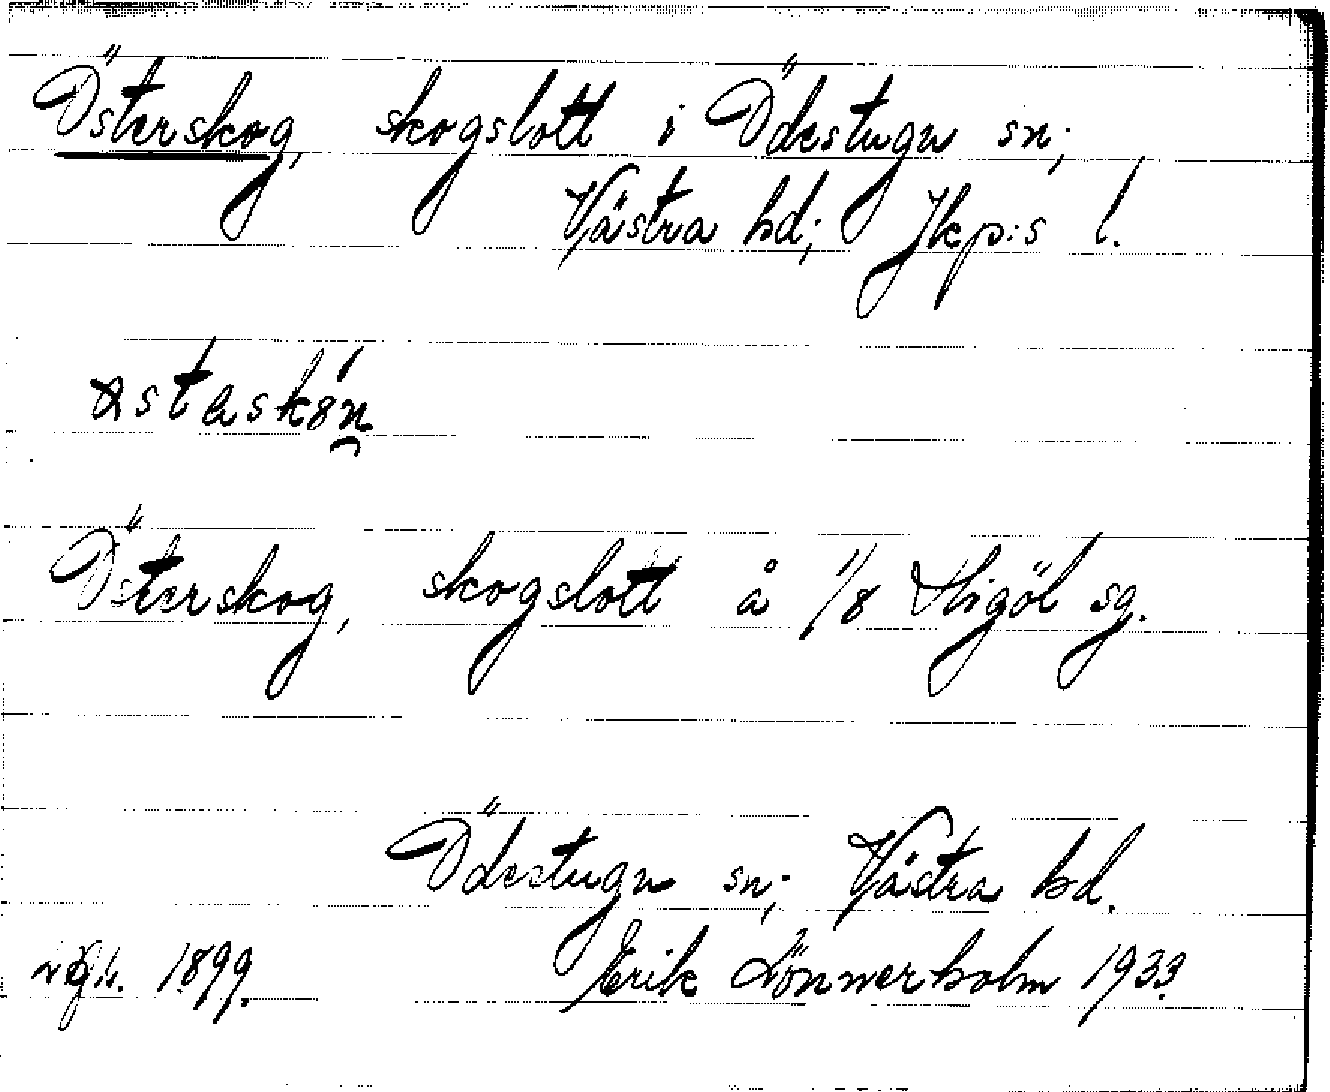 Österskog, skogslott i Ödestugu sn;
Västra hd; Jkp:s l.
Österskog, skogslott å 1/8 Stigöl sg.
Ödestugu sn; Västra hd.
1899. Erik Lönnerholm 1933